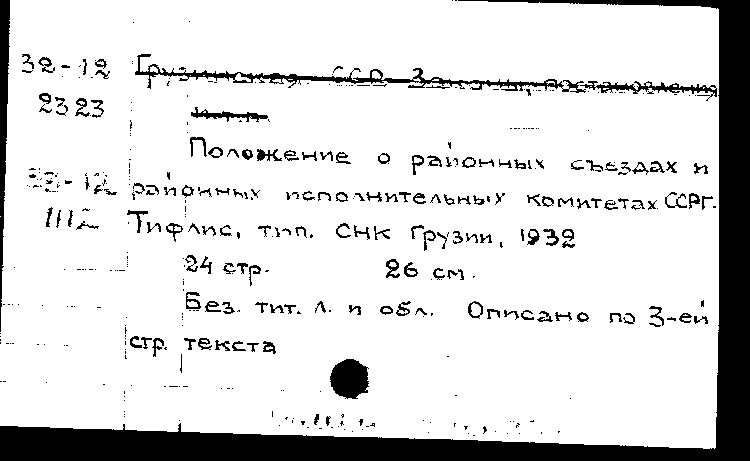 32-12 Грузинская ССР Законы, постановления
2323 и т.п.
Положение о районных съездах и
32-12 районных исполнительных комитетах ССРГ.
1112 Тифлис, тип. СНК Грузии, 1932
24 стр. 26 см.
Без. тит. л. и обл. Описано по 3-ей
стр. текста